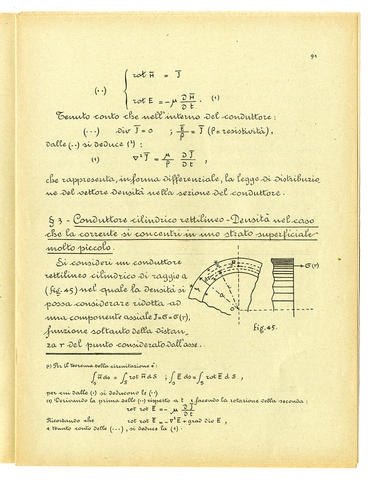 91
(··) { rot H̄ = J̄
rot E = -μ ∂H̄/∂t . (1)
Tenuto conto che nell'interno del conduttore:
(···) div J̄ = 0 ; Ē/ρ = J̄ (ρ = resistività),
dalle (··) si deduce (²) :
(1) ∇² J̄ = μ/ρ ∂J̄/∂t ,
che rappresenta, in forma differenziale, la legge di distribuzio
ne del vettore densità nella sezione del conduttore.
§ 3 - Conduttore cilindrico rettilineo - Densità nel caso
che la corrente si concentri in uno strato superficiale
molto piccolo.
Si consideri un conduttore
rettilineo cilindrico di raggio a
(fig. 45) nel quale la densità si
possa considerare ridotta ad
una componente assiale J = σ = σ(r),
funzione soltanto della distan_
za r del punto considerato dall'asse.
σ(r)
fig. 45.
(1) Per il teorema della circuitazione è:
∫ H ds = ∫ rot H dS ; ∫ E ds = ∫ rot E dS ,
per cui dalle (·) si deducono le (··)
(2) Derivando la prima delle (··) rispetto a t e facendo la rotazione della seconda:
rot rot E = - μ ∂J̄/∂t
Ricordando che rot rot E = -∇²E + grad div E ,
e tenuto conto delle (···), si deduce la (1).